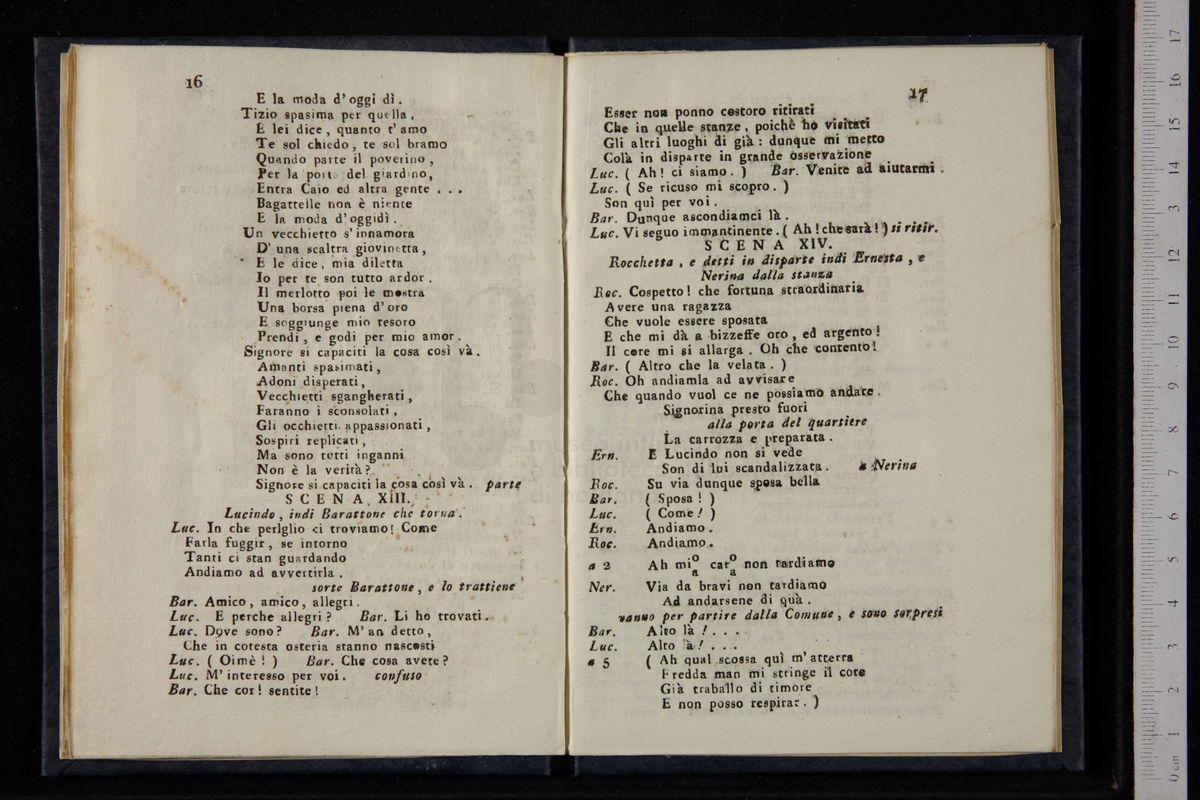 16
E la moda d' oggi dì .
Tizio spasima per quella ,
E lei dice , quanto t' amo
Te sol chiedo , te sol bramo
Quando parte il poverino ,
Per la porta del giardino,
Entra Caio ed altra gente . . .
Bagattelle non è niente
E la moda d' oggidì .
Un vecchietto s' innamora
D' una scaltra giovinetta ,
E le dice , mia diletta
Io per te son tutto ardor .
Il merlotto poi le mostra
Una borsa piena d' oro
E soggiunge mio tesoro
Prendi , e godi per mio amor .
Signore si capaciti la cosa così và .
Amanti spasimati ,
Adoni disperati ,
Vecchietti sgangherati ,
Faranno i sconsolati ,
Gli occhietti appassionati ,
Sospiri replicati ,
Ma sono tutti inganni
Non è la verità ?
Signore si capaciti la cosa così và . parte
SCENA XIII.
Lucindo , indi Barattone che torna .
Luc. In che periglio ci troviamo! Come
Farla fuggir , se intorno
Tanti ci stan guardando
Andiamo ad avvertirla .
sorte Barattone , e lo trattiene
Bar. Amico , amico , allegri .
Luc. E perche allegri ? Bar. Li ho trovati .
Luc. Dove sono ? Bar. M' an detto ,
Che in cotesta osteria stanno nascosti
Luc. ( Oimè ! ) Bar. Che cosa avete ?
Luc. M' interesso per voi . confuso
Bar. Che cor ! sentite !
17
Esser non ponno costoro ritirati
Che in quelle stanze , poichè ho visitati
Gli altri luoghi di già : dunque mi metto
Colà in disparte in grande osservazione
Luc. ( Ah ! ci siamo . ) Bar. Venite ad aiutarmi .
Luc. ( Se ricuso mi scopro . )
Son quì per voi .
Bar. Dunque ascondiamci là .
Luc. Vi seguo immantinente . ( Ah ! che sarà ! ) si ritir.
SCENA XIV.
Rocchetta , e detti in disparte indi Ernesta , e
Nerina dalla stanza
Roc. Cospetto ! che fortuna straordinaria
Avere una ragazza
Che vuole essere sposata
E che mi dà a bizzeffe oro , ed argento !
Il core mi si allarga . Oh che contento !
Bar. ( Altro che la velata . )
Roc. Oh andiamla ad avvisare
Che quando vuol ce ne possiamo andare .
Signorina presto fuori
alla porta del quartiere
La carrozza e preparata .
Ern. E Lucindo non si vede
Son di lui scandalizzata . a Nerina
Roc. Su via dunque sposa bella
Bar. ( Sposa ! )
Luc. ( Come ! )
Ern. Andiamo .
Roc. Andiamo .
a 2 Ah mi o/a car o/a non tardiamo
Ner. Via da bravi non tardiamo
Ad andarsene di quà .
vanno per partire dalla Comune , e sono sorpresi
Bar. Alto là ! . . .
Luc. Alto là ! . . .
a 5 ( Ah qual scossa quì m' atterra
Fredda man mi stringe il core
Già traballo di timore
E non posso respirar . )